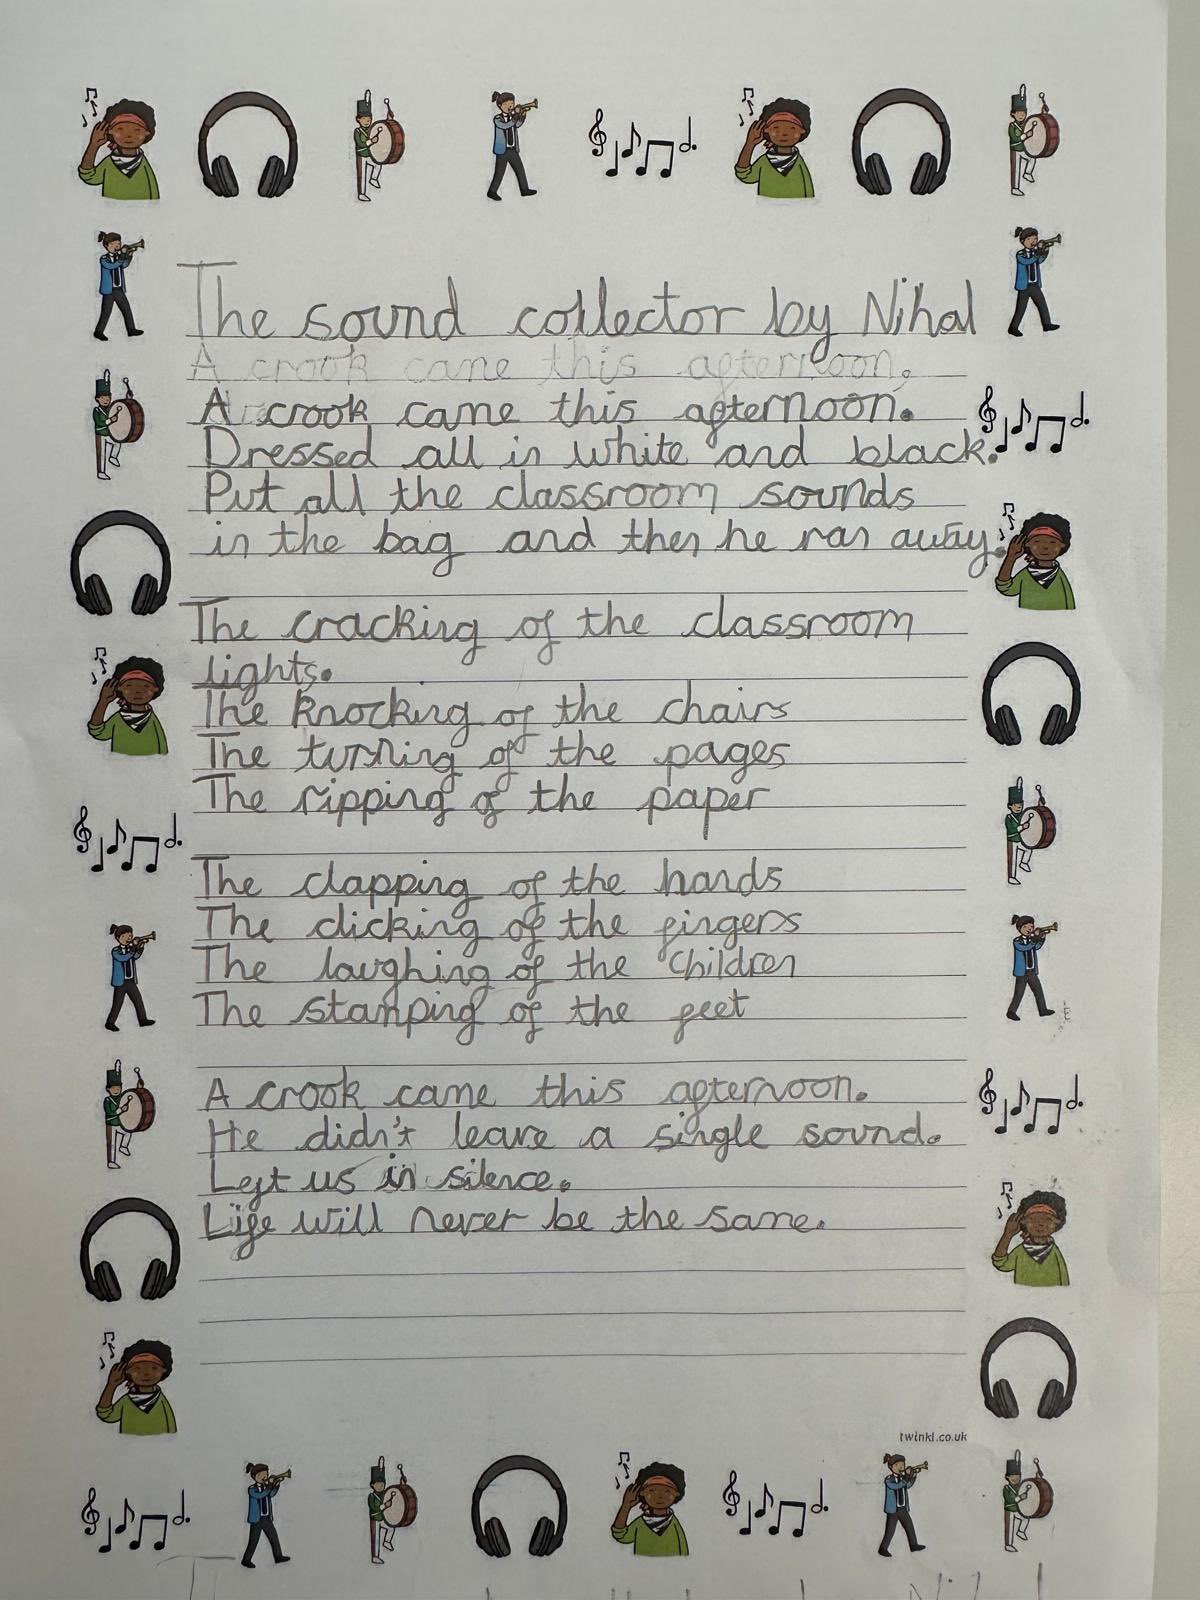 The sound collector by Nihal
A crook came this afternoon,
A crook came this afternoon.
Dressed all in white and black.
Put all the classroom sounds
in the bag and then he ran away.
The cracking of the classroom
lights.
The knocking of the chairs
The turning of the pages
The ripping of the paper
The clapping of the hands
The clicking of the fingers
The laughing of the children
The stamping of the feet
A crook came this afternoon.
He didn't leave a single sound.
Left us in silence.
Life will never be the same.
twinkl.co.uk